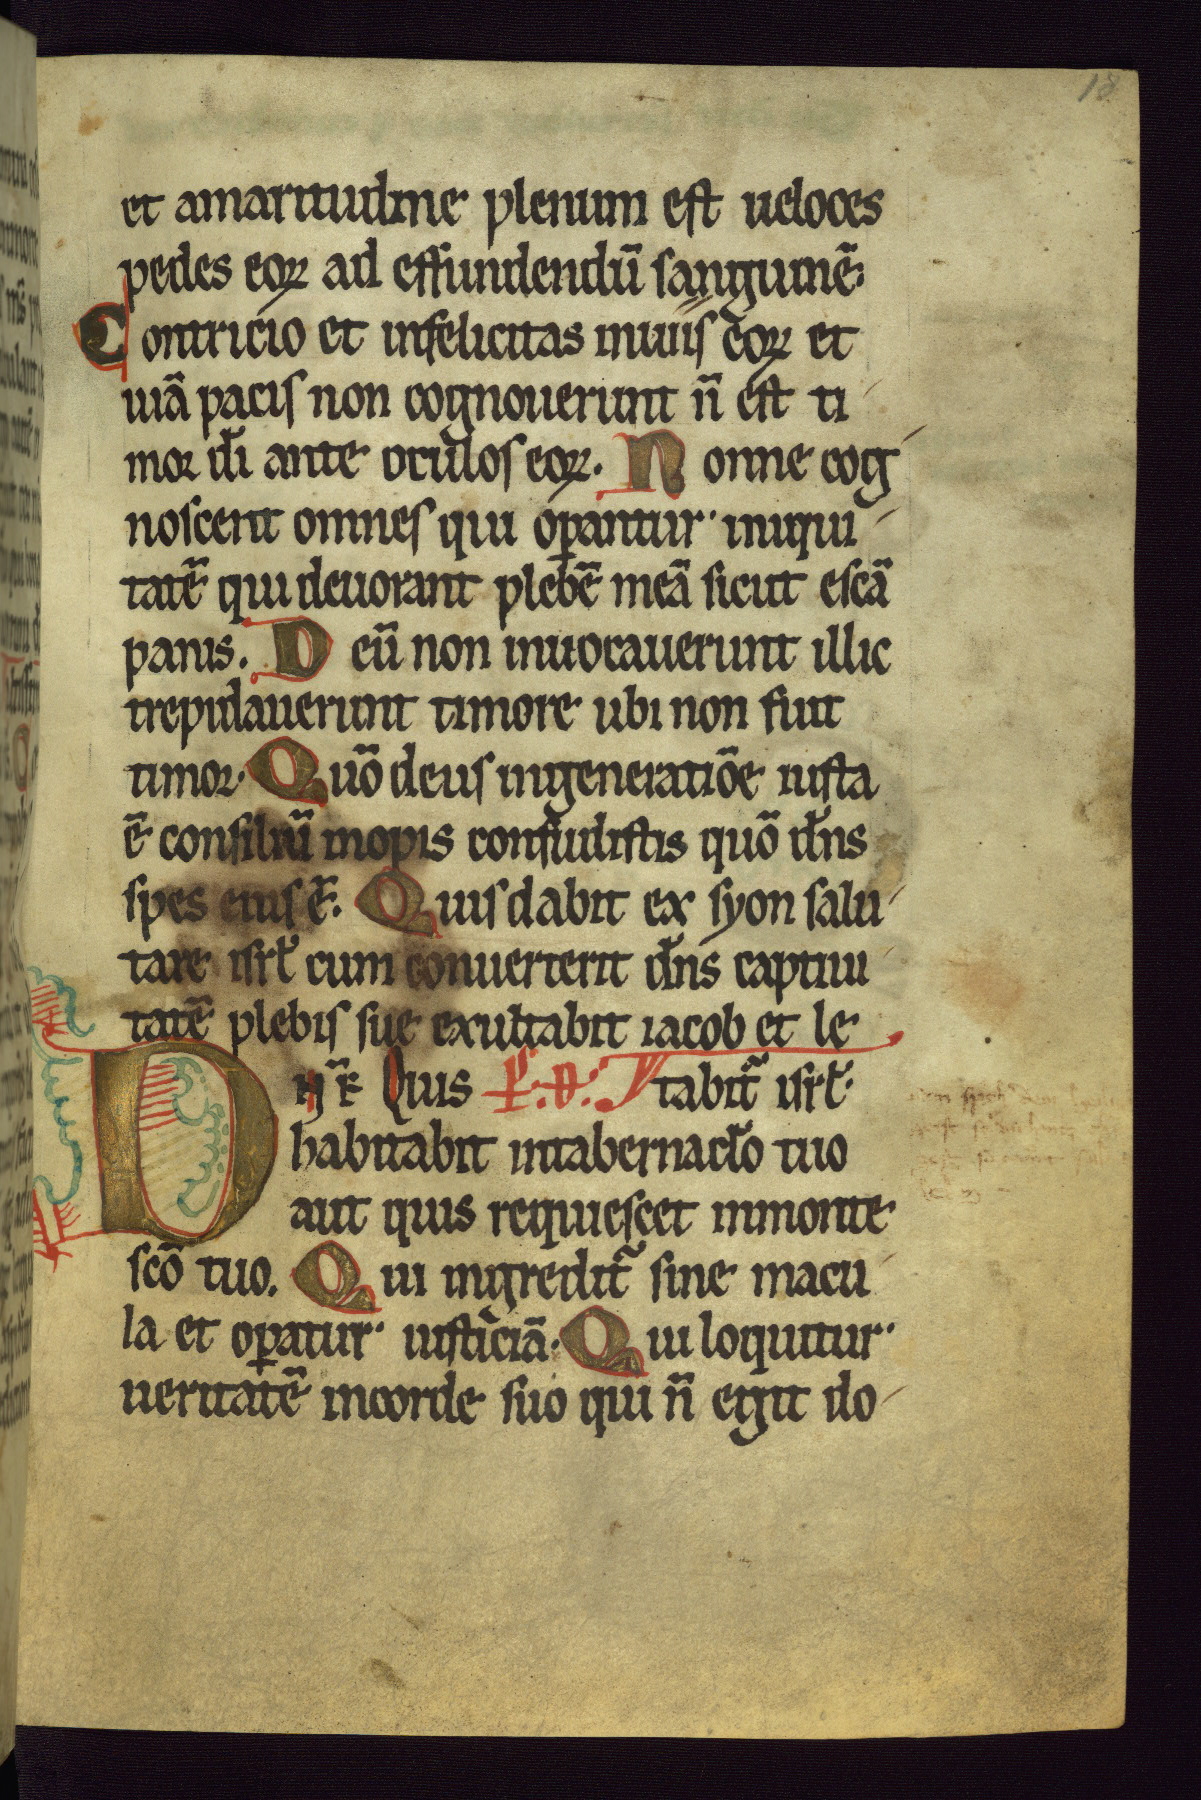 18
et amaritudine plenum est ueloces
pedes eoꝝ ad effundendū sanguinē:
Contricio et infelicitas inuiis eoꝝ et
uiā pacis non cognouerunt n̄ est ti
mor di ante oculos eoꝝ. Nonne cog
noscent omnes qui oꝑantur iniqui
tatē qui deuorant plebē meā sicut escā
panis. Deū non inuocauerunt illic
trepidauerunt timore ubi non fuit
timor. Quō deus ingeneratiōe iusta
ē consiliū inopis confudistis quō dn̄s
spes eius ē. Quis dabit ex syon salu
tare isrl̄ cum conuerterit dn̄s captiui
tatē plebis sue exultabit iacob et le
tabit̄ isrl̄.
Dn̄e Quis
habitabit intabernaclo tuo
aut quis requiescet inmonte
scō tuo. Qui ingredit̄ sine macu
la et oꝑatur iusticiā. Qui loquitur
ueritatē incorde suo qui n̄ egit do